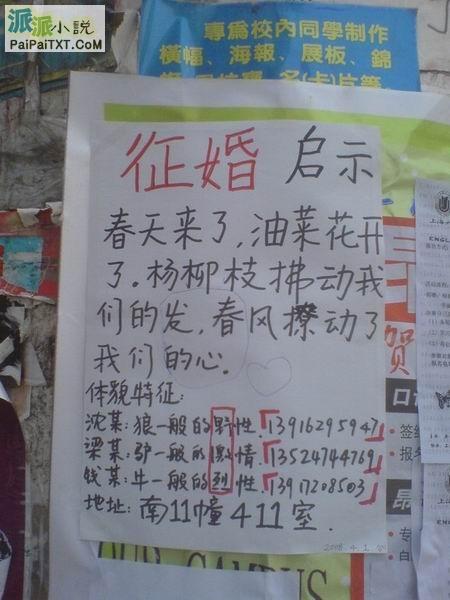 派派小说
PaiPaiTXT.Com
專為校內同學制作
橫幅、海報、展板、錦
名(卡)片等
征婚 启示
春天来了,油菜花开
了.杨柳枝拂动我
们的发,春风撩动了
我们的心.
体貌特征:
沈某:狼一般的野性.「13916295947」
梁某:驴一般的激情.「13524744769」
钱某:牛一般的烈性.「13917208503」
地址:南11幢411室.
2008.4.1
贺
口
签
报
昂
专
自
上海
ENGL
OUR CAMPUS